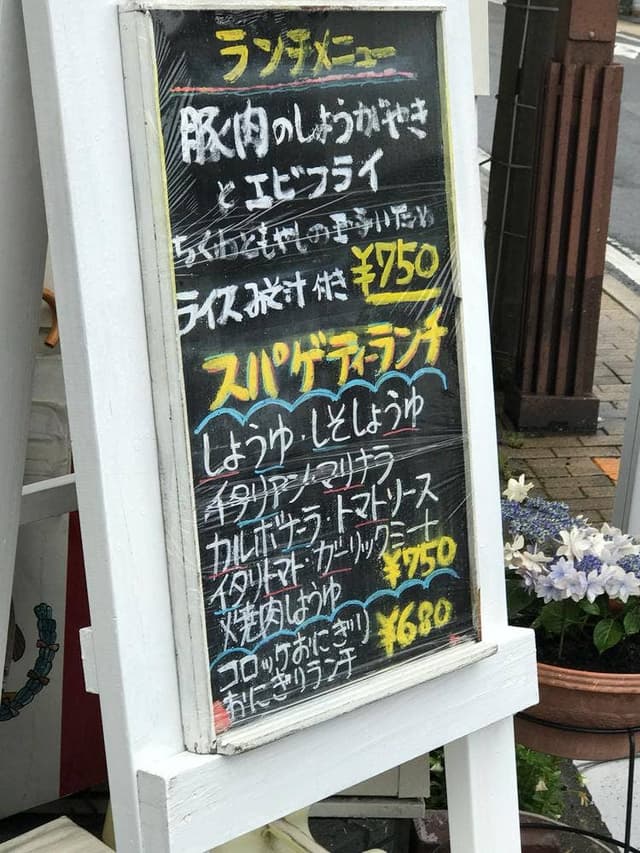 ランチメニュー
豚肉のしょうがやき
とエビフライ
ちくわともやしの玉子いため
ライスみそ汁付き ¥750
スパゲティーランチ
しょうゆ・しそしょうゆ
イタリアン・マリナラ
カルボナーラ・トマトソース
イタリトマト・ガーリックミート
焼肉しょうゆ ¥750
コロッケおにぎり ¥680
おにぎりランチ